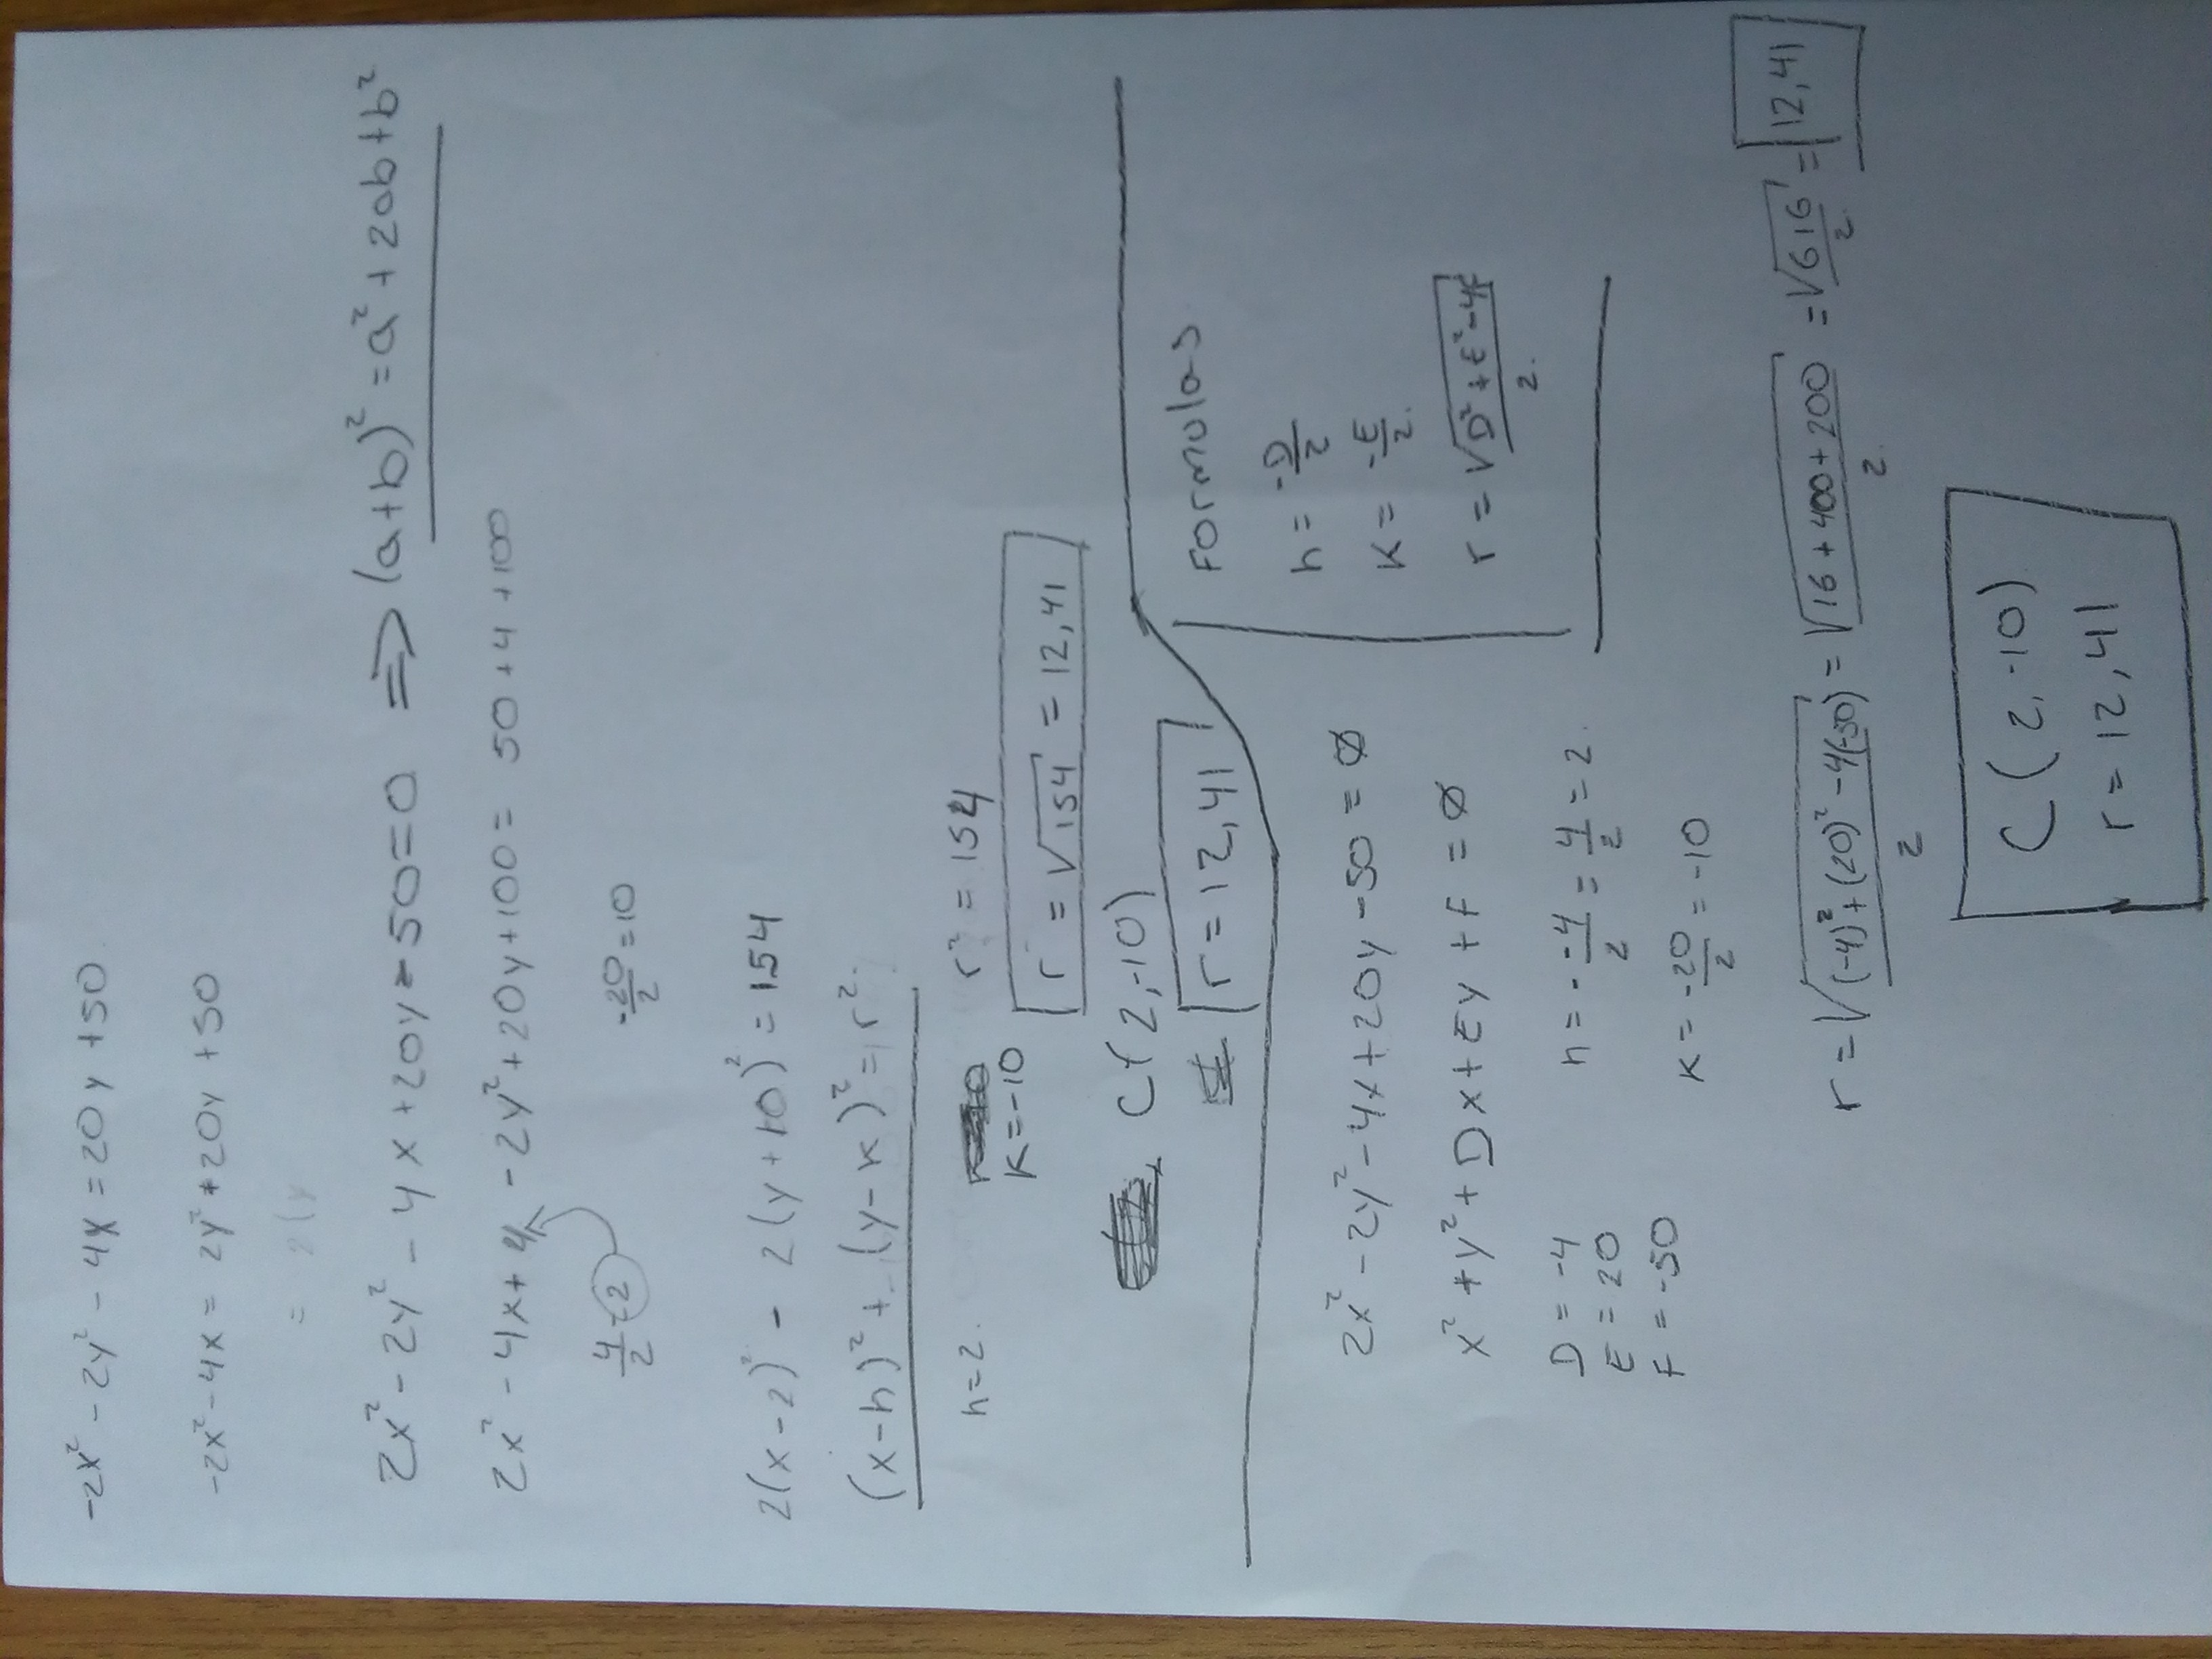 -2x² - 2y² - 4x = 20y + 50
-2x² - 4x = 2y² + 20y + 50
= 2(y
2x² - 2y² - 4x + 20y - 50 = 0 ⇒ (a+b)² = a² + 2ab + b²
2x² - 4x + 4 - 2y² + 20y + 100 = 50 + 4 + 100
4/2 = 2 -20/2 = 10
2(x-2)² - 2(y+10)² = 154
(x-h)² + (y-k)² = r²
h = 2 K = -10 r² = 154
r = √154 = 12,41
C(2,-10)
r = 12,41
2x² - 2y² - 4x + 20y - 50 = 0
x² + y² + Dx + Ey + F = 0
D = -4
E = 20
F = -50
h = - -4/2 = 4/2 = 2
K = -20/2 = -10
Formulas
h = -D/2
K = -E/2
r = √D² + E² - 4F/2
r = √(-4)² + (20)² - 4(-50)/2 = √16 + 400 + 200/2 = √616/2 = 12,41
C(2,-10)
r = 12,41